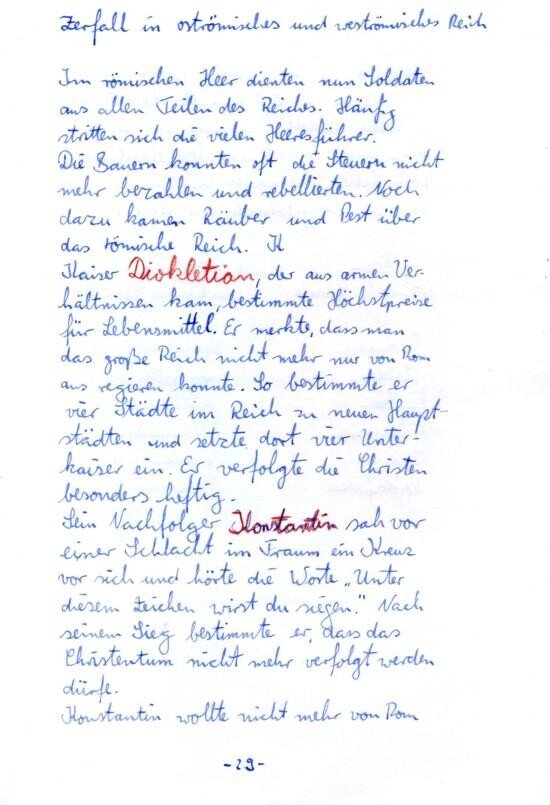 Zerfall in oströmisches und weströmisches Reich
Im römischen Heer dienten nun Soldaten
aus allen Teilen des Reiches. Häufig
stritten sich die vielen Heeresführer.
Die Bauern konnten oft die Steuern nicht
mehr bezahlen und rebellierten. Noch
dazu kamen Räuber und Pest über
das römische Reich. K
Kaiser Diokletian, der aus armen Ver-
hältnissen kam, bestimmte Höchstpreise
für Lebensmittel. Er merkte, dass man
das große Reich nicht mehr nur von Rom
aus regieren konnte. So bestimmte er
vier Städte im Reich zu neuen Haupt-
städten und setzte dort vier Unter-
kaiser ein. Er verfolgte die Christen
besonders heftig.
Sein Nachfolger Konstantin sah vor
einer Schlacht im Traum ein Kreuz
vor sich und hörte die Worte „Unter
diesem Zeichen wirst du siegen." Nach
seinem Sieg bestimmte er, dass das
Christentum nicht mehr verfolgt werden
dürfe.
Konstantin wollte nicht mehr von Rom
-29-